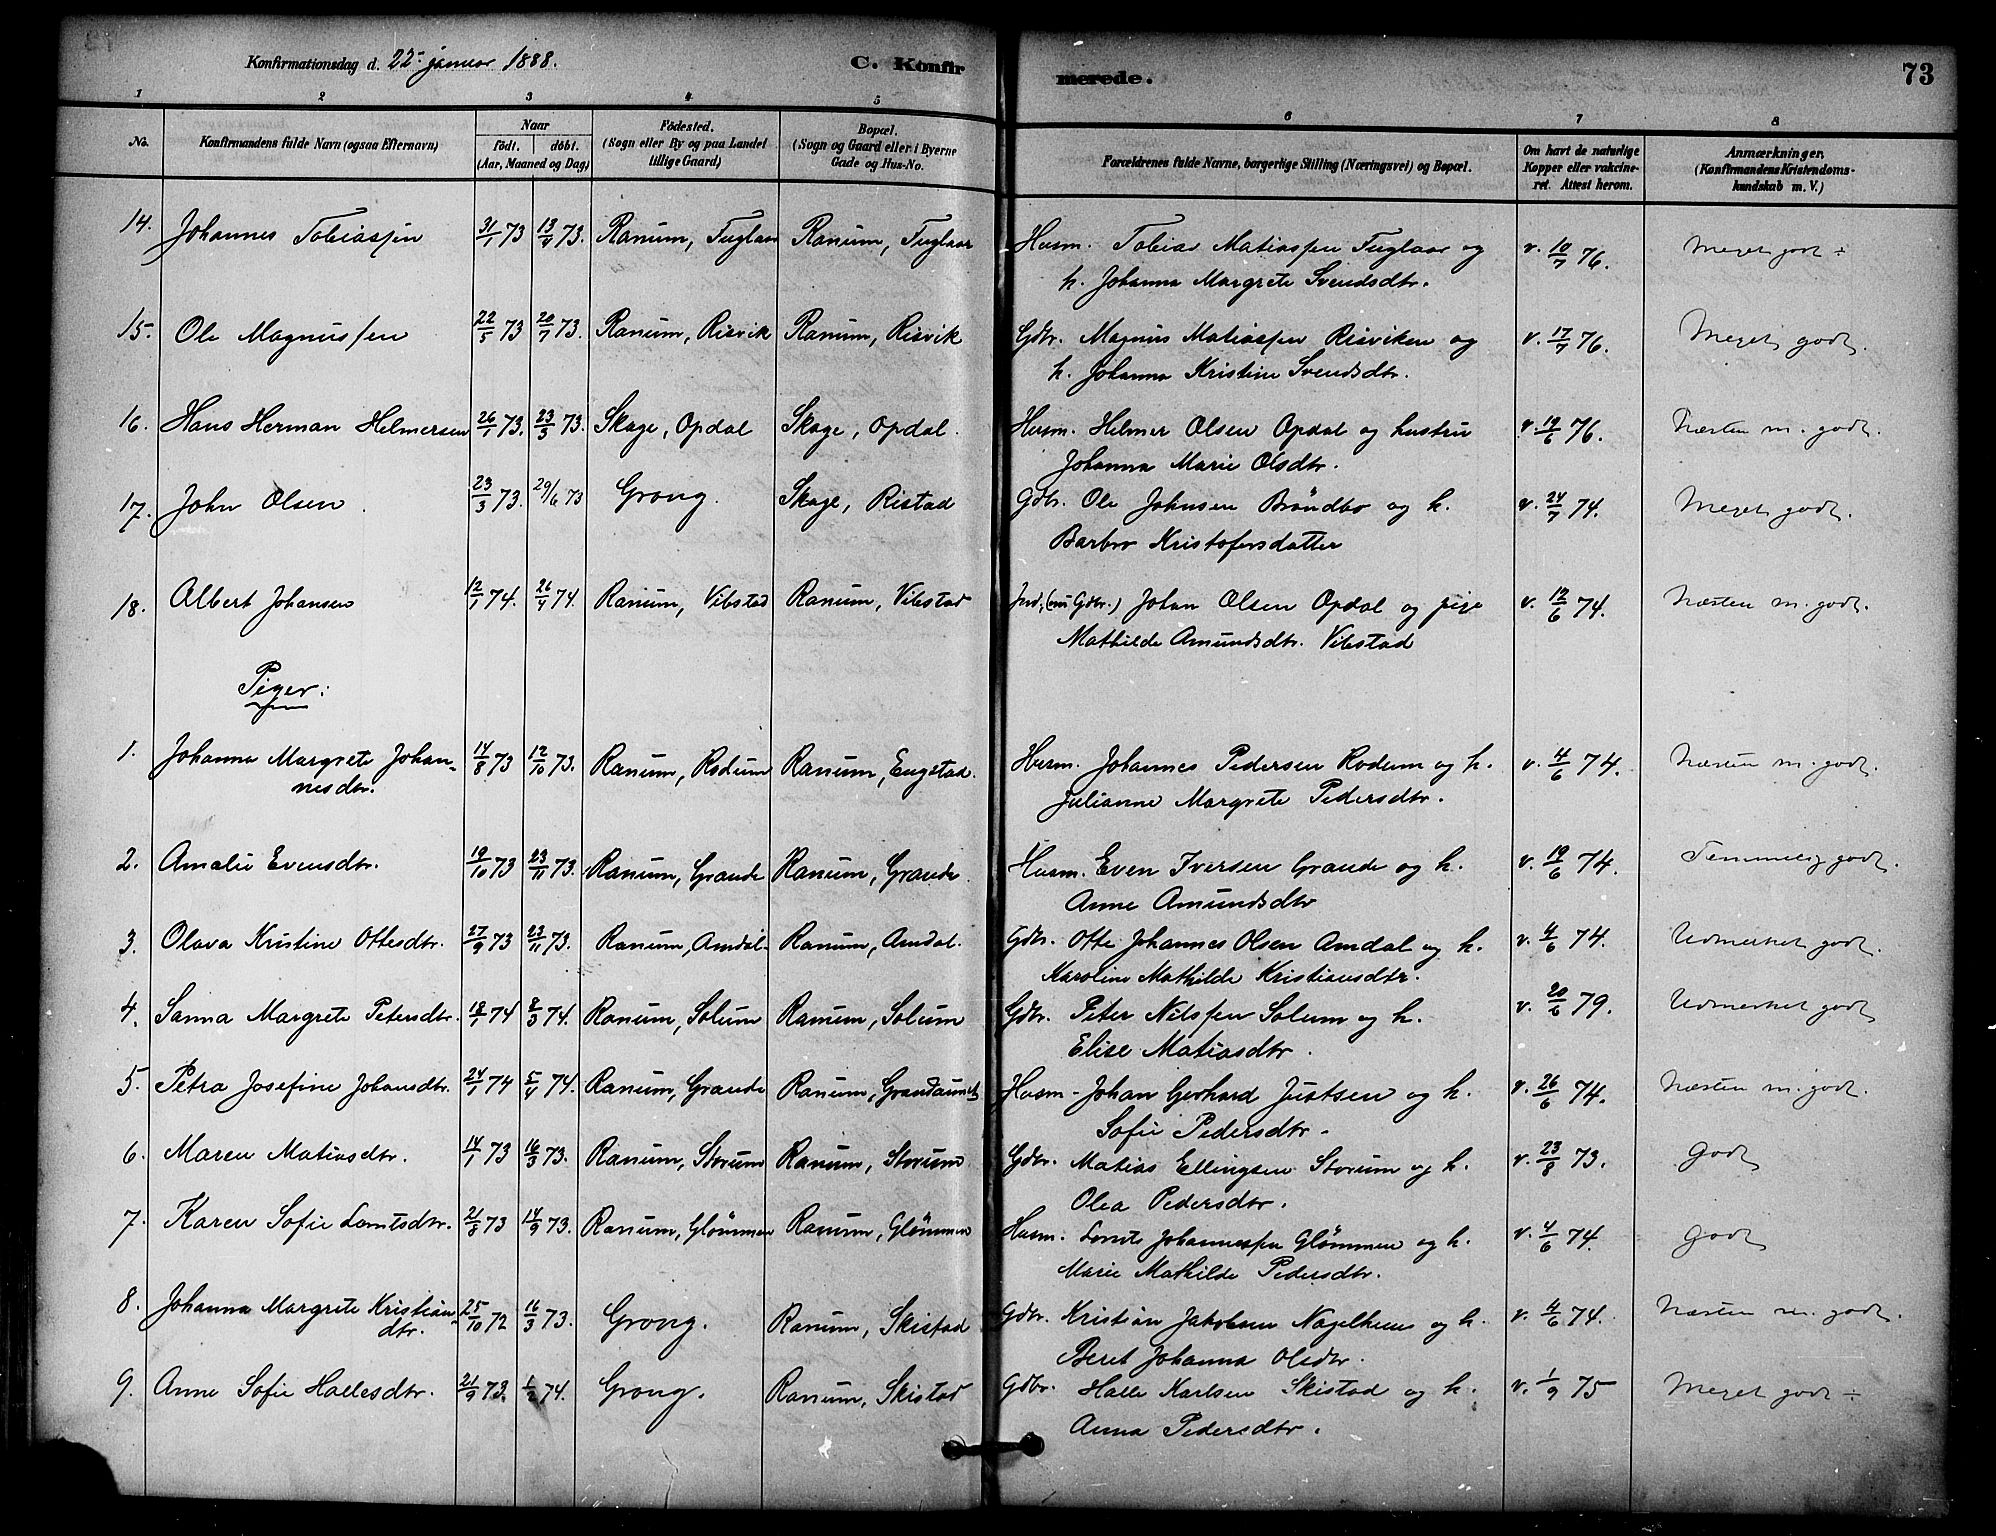 Konfirmationsdag d. 22- januar 1888.
C. Konfirmerede.
73
1 2 3 4 5 6 7 8
No.
Konfirmandens fulde Navn (ogsaa Efternavn)
Naar
födt. döbt.
(Aar, Maaned og Dag)
Födested.
(Sogn eller By og paa Landet
tillige Gaard)
Bopæl.
(Sogn og Gaard eller i Byerne
Gade og Hus-No.
Forældrenes fulde Navne, borgerlige Stilling (Næringsvei) og Bopæl.
Om havt de naturlige
Kopper eller vakcine-
ret. Attest herom.
Anmærkninger.
(Konfirmandens Kristendoms-
kundskab m. V.)
14. Johannes Tobiassen 31/1 73 13/4 73. Ranum, Fuglaar Ranum, Fuglaar Husm. Tobias Matiassen Fuglaar og v. 10/7 76. Meget godt ÷
h. Johanna Margrete Svendsdtr.
15. Ole Magnussen 22/5 73 20/7 73. Ranum, Risvik Ranum, Risvik Gdbr. Magnus Matiassen Risviken og v. 17/7 76. Meget godt.
h. Johanna Kristine Svendsdtr.
16. Hans Herman Helmersen 26/1 73. 23/3 73. Skage, Opdal Skage, Opdal. Husm. Helmer Olsen Opdal og hustru v. 19/6 76. Næsten m. godt.
Johanna Marie Olsdtr.
17. John Olsen 23/3 73. 29/6 73 Grong. Skage, Ristad Gdbr. Ole Johnsen Bröndbo og h. v. 24/7 74. Meget godt.
Barbro Kristofersdatter
18. Albert Johansen 12/1 74. 26/4 74. Ranum, Vibstad Ranum, Vibstad Ind. (nu Gdbr.) Johan Olsen Opdal og pige v. 12/6 74. Næsten m. godt.
Mathilde Amundsdtr. Vibstad
Piger:
1. Johanna Margrete Johan- 14/8 73 12/10 73. Ranum, Rodum Ranum, Engstad. Husm. Johannes Pedersen Rodum og h. v. 4/6 74. Næsten m. godt.
nesdtr. Julianne Margrete Pedersdtr.
2. Amalie Evensdtr. 19/10 73 23/11 73. Ranum, Grande Ranum, Grande. Husm. Even Iversen Grande og h. v. 19/6 74. Temmelig godt.
Anne Amundsdtr
3. Olava Kristine Ottesdtr. 27/9 73 23/11 73. Ranum, Amdal. Ranum, Amdal. Gdbr. Otte Johannes Olsen Amdal og h. v. 4/6 74. Udmerket godt
Karoline Mathilde Kristiansdtr.
4. Sanna Margrete Petersdtr. 18/1 74 8/3 74. Ranum, Solum Ranum, Solum Gdbr. Peter Nilssen Solum og h. v. 20/6 79. Udmerket godt
Elise Matiasdtr.
5. Petra Josefine Johansdtr. 24/1 74 5/4 74. Ranum, Grande Ranum, Husm- Johan Gerhard Justsen og h. v. 26/6 74. Næsten m. godt.
Sofie Pedersdtr.
6. Maren Matiasdtr. 14/1 73 16/3 73. Ranum, Storum Ranum, Storum Gdbr. Matias Ellingsen Storum og h. v. 23/8 73. Godt
Olea Pedersdtr.
7. Karen Sofie Lorntsdtr. 21/8 73 14/9 73. Ranum, Glömmen Ranum, Glömmen Husm. Lornts Johannessen Glömmen og h. v. 4/6 74. Godt
Marie Mathilde Pedersdtr.
8. Johanna Margrete Kristian- 25/10 72 16/3 73. Grong. Ranum, Skistad Gdbr. Kristian Jakobsen og h. v. 4/6 74. Næsten m. godt.
dtr. Beret Johanna Olsdtr.
9. Anne Sofie Hallesdtr. 21/9 73. 74. Grong. Ranum, Skistad Gdbr. Halle Karlsen Skistad og h. v. 1/9 75 Meget godt ÷
Anna Pedersdtr.